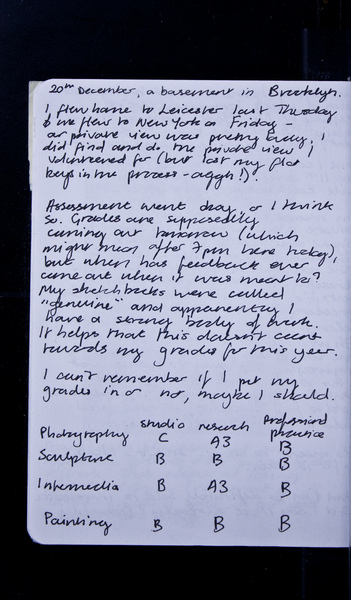 20th December, a basement in Brooklyn.
I flew home to Leicester last Thursday
& we flew to New York on Friday -
our private view was pretty busy. I
did find and do the private view I
volunteered for (but lost my flat
keys in the process - aggh!).
Assessment went okay, or I think
so. Grades are supposedly
coming out tomorrow (which
might mean after 7pm here today),
but when has feedback ever
came out when it was meant to?
My sketchbooks were called
"genuine" and apparently I
have a strong body of work.
It helps that this doesn't count
towards my grades for this year.
I can't remember if I put my
grades in or not, maybe I should.
studio research Professional practice
Photography C A3 B
Sculpture B B B
Intermedia B A3 B
Painting B B B